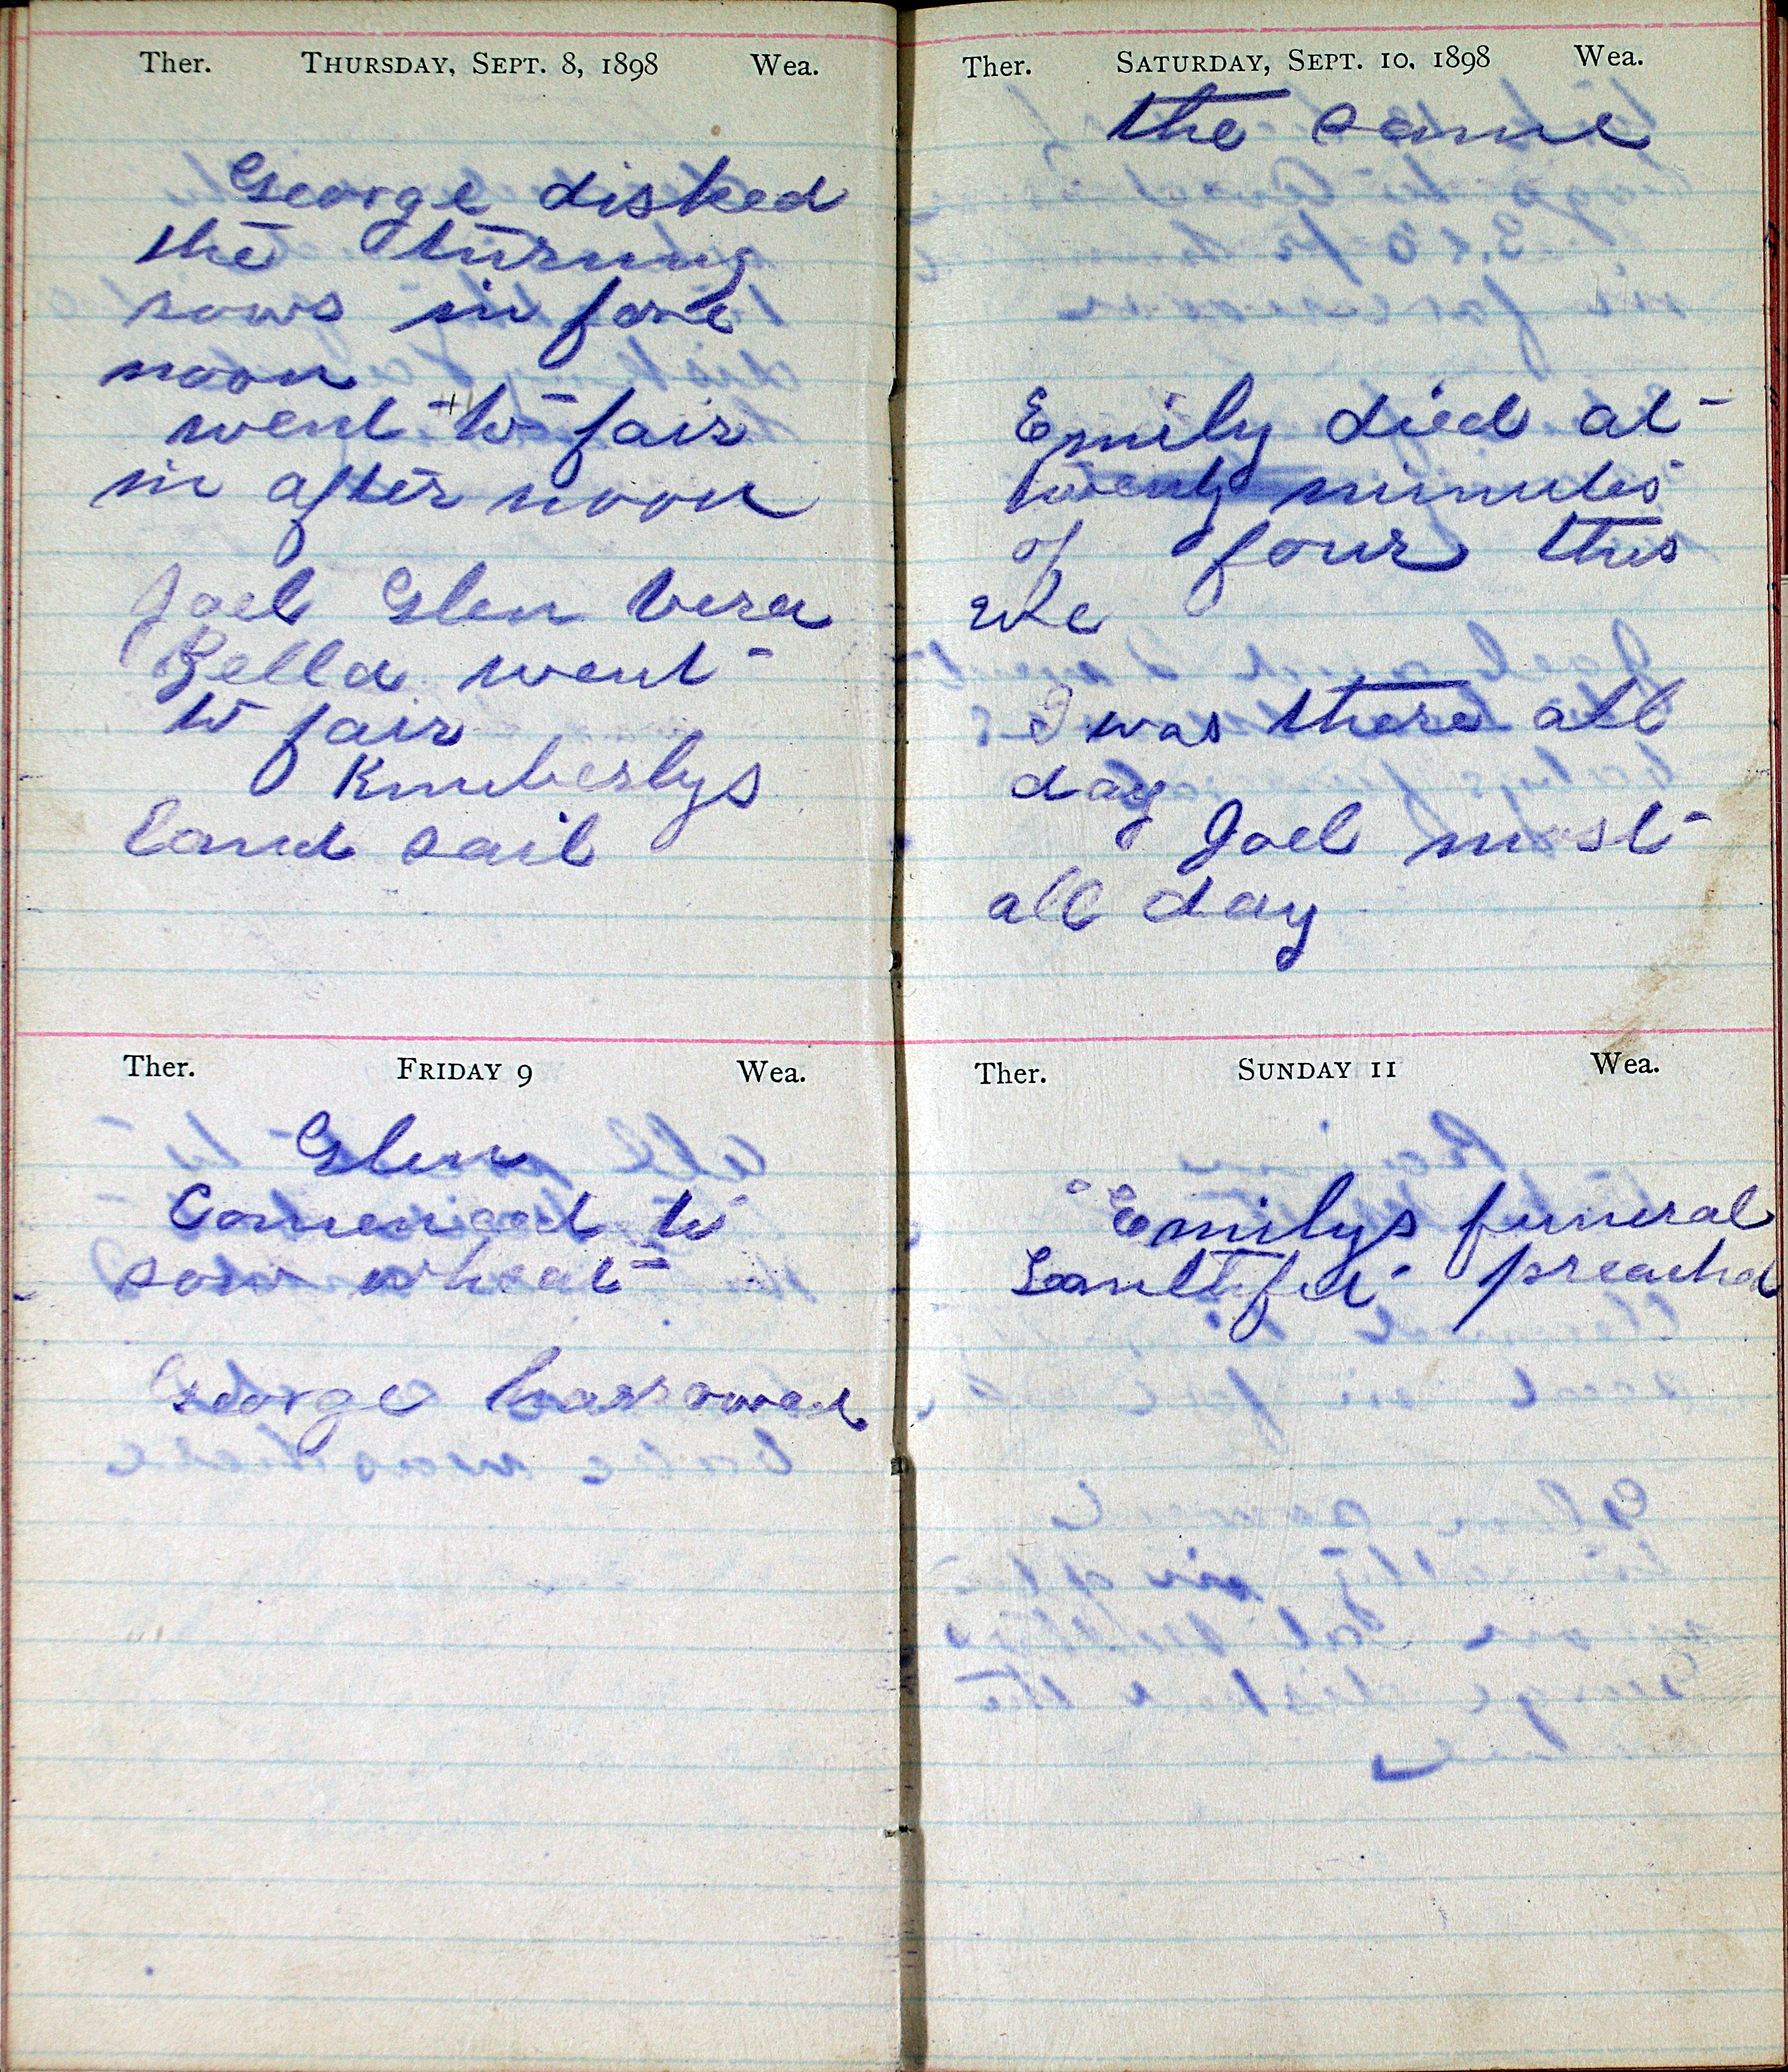 Ther. THURSDAY, SEPT. 8, 1898 Wea.
George disked
the turning
rows in fore
noon
went to fair
in after noon
Joel Glen Vera
Bella went
to fair
Kimberlys
land sail
Ther. FRIDAY 9 Wea.
Glen
Comenced to
sow wheat
George harrowed
Ther. SATURDAY, SEPT. 10, 1898 Wea.
the same
Emily died at
twenty minutes
of four this
I was there all
day
Joel most
all day
Ther. SUNDAY 11 Wea.
Emilys funeral
preached